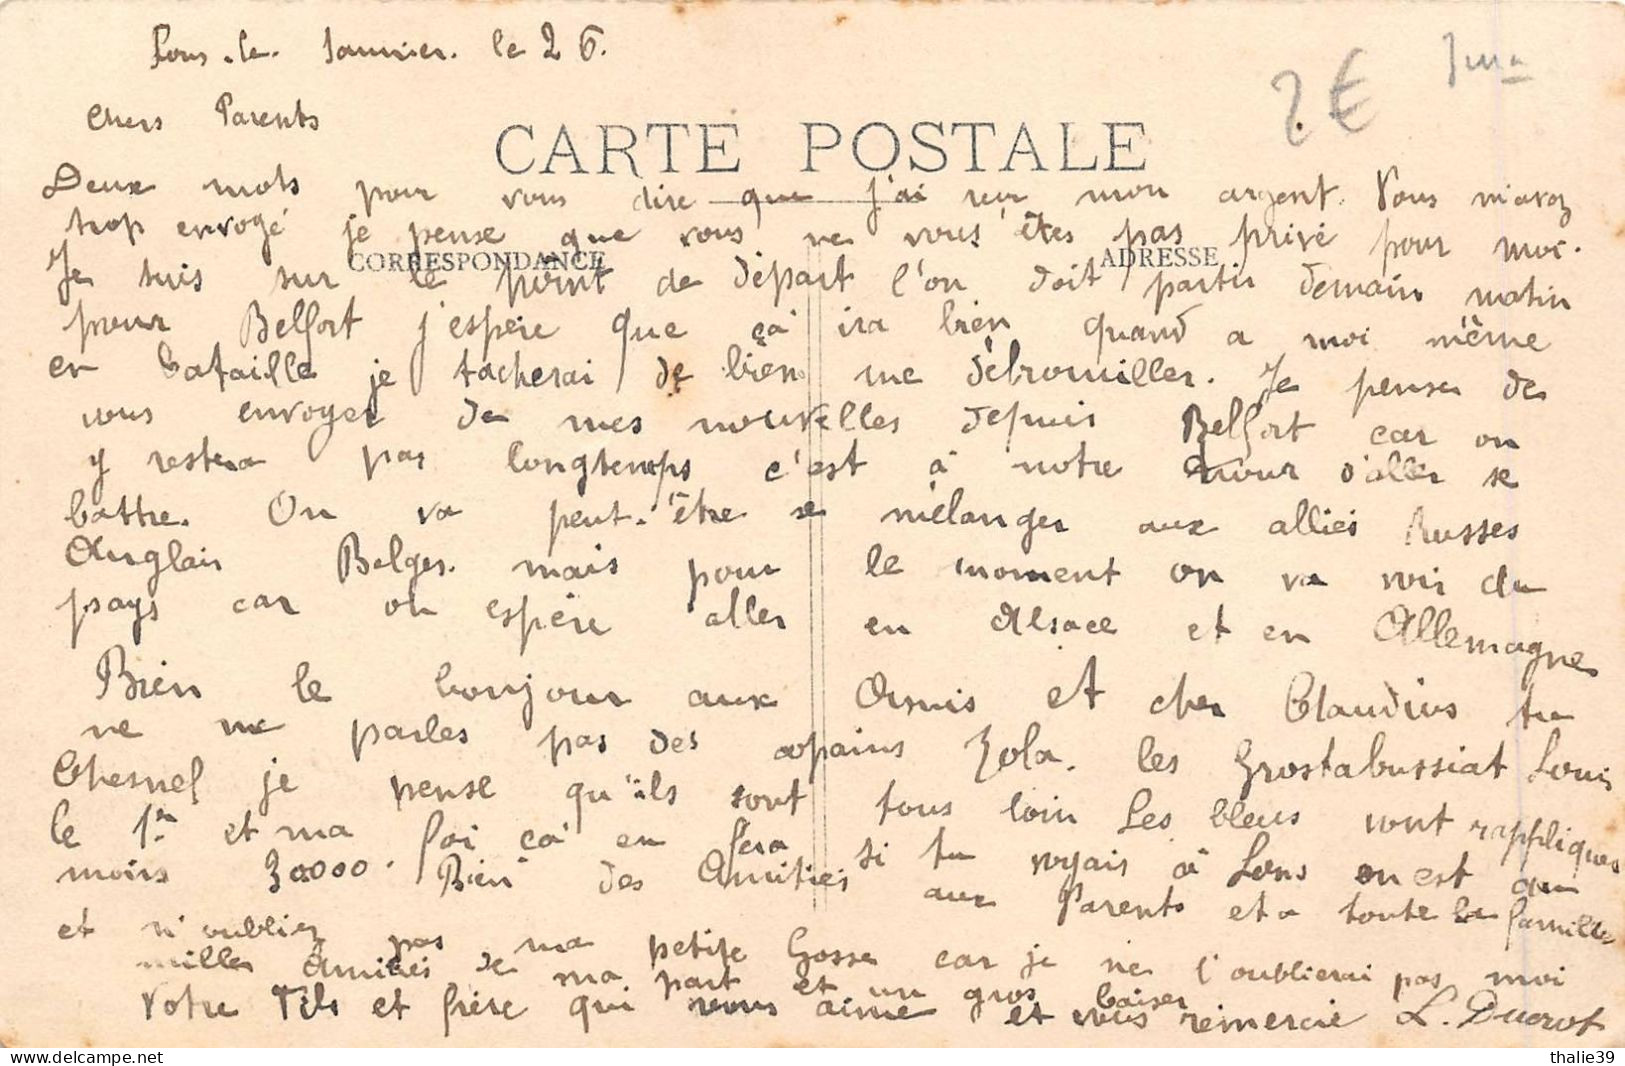 Lons-le-Saunier. le 26.
2€
Chers Parents
CARTE POSTALE
Deux mots pour vous dire que j'ai reçu mon argent. Vous m'avez
trop envoyé je pense que vous ne vous êtes pas privé pour moi.
CORRESPONDANCE ADRESSE
Je suis sur le point de départ l'on doit partir demain matin
pour Belfort j'espère que ça ira bien quand a moi même
en bataille je tacherai de bien me débrouiller. Je pense de
vous envoyer de mes nouvelles depuis Belfort car on
y restera pas longtemps c'est à notre tour d'aller se
battre. On va peut-être se mélanger aux alliés Russes
Anglais Belges. mais pour le moment on va voir du
pays car on espère aller en Alsace et en Allemagne
Bien le bonjour aux Amis et cher Claudius tu
ne me parles pas des copains Zola. les Grostabussiat Louis
Chesnel je pense qu'ils sont tous loin Les bleus vont rappliques
le 1er et ma foi ça en fera si tu voyais à Lons on est au
moins 30000. Bien des Amitiés aux Parents et a toute la famille
et n'oubliez pas ma petite Gosse car je ne l'oublierai pas moi
milles Amitiés de ma part et un gros baiser
Votre Fils et frère qui vous aime et vous remercie L. Ducrot
thalie39